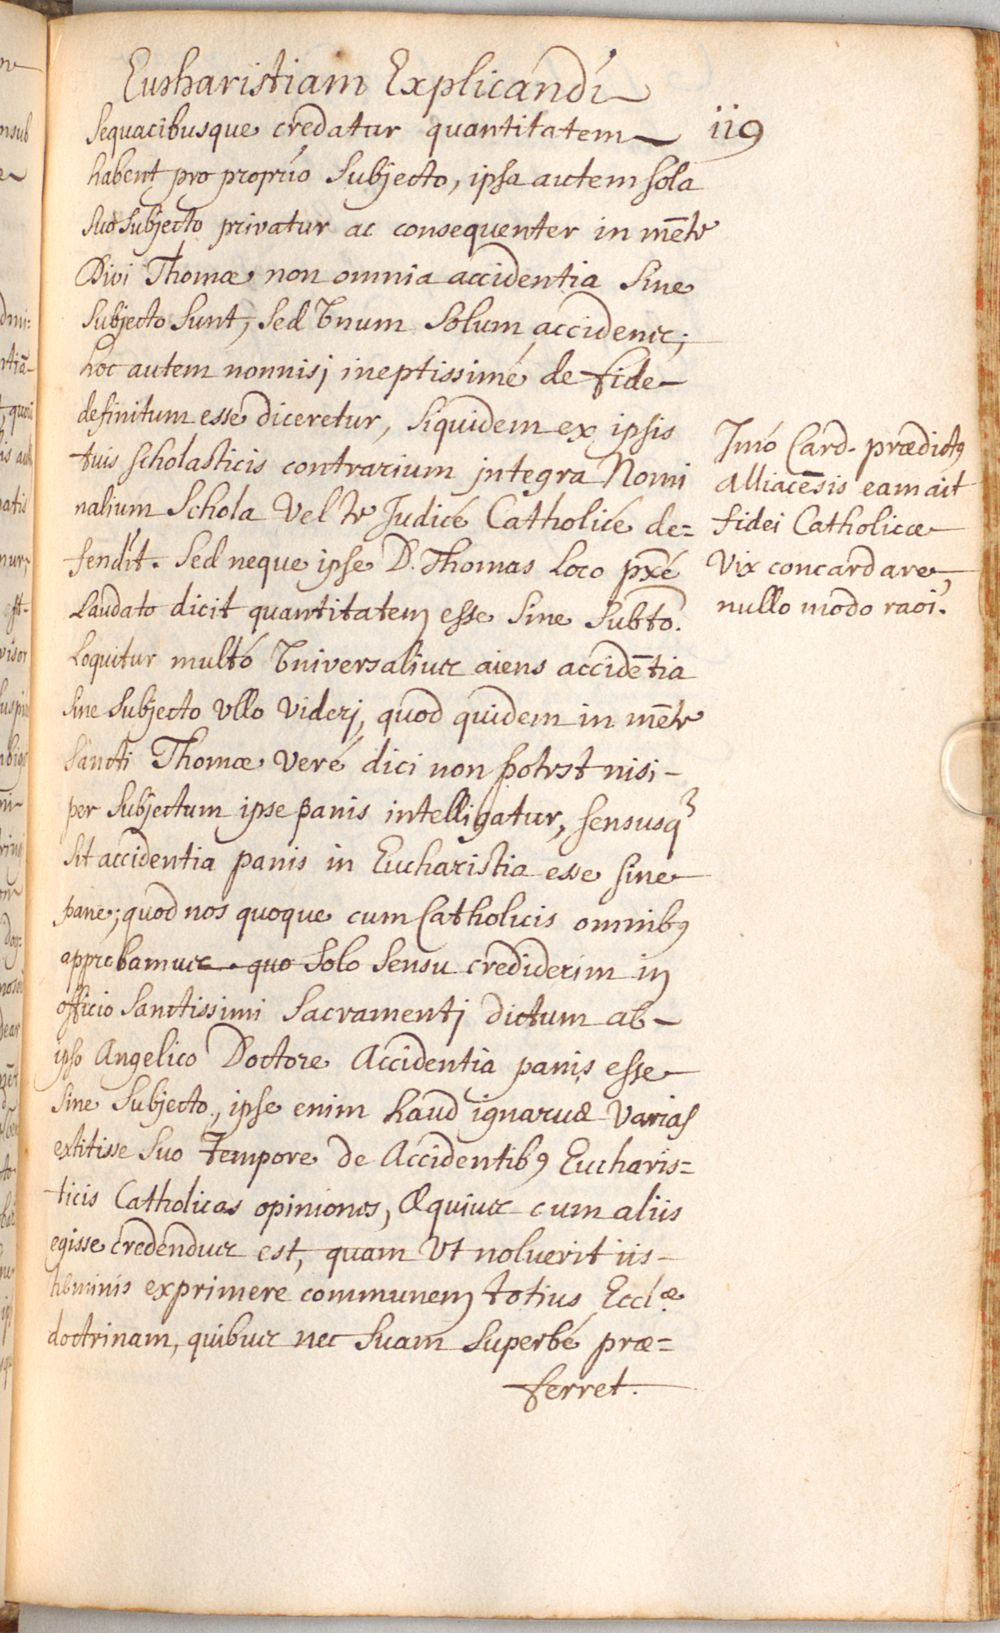 Eucharistiam Explicandi
119
Sequacibusque credatur quantitatem
habent pro propriò Subjecto, ipsa autem sola
suo Subjecto privatur ac consequenter in mēte
Divi Thomæ non omnia accidentia Sine
Subjecto Sunt, Sed Vnum Solum accidens;
hoc autem nonnisi ineptissimé de fide
definitum esse diceretur, Siquidem ex ipsis
tuis scholasticis contrarium integra Nomi
nalium Schola Vel te Judicé Catholicé de=
fendit. Sed neque ipse D. Thomas Loco pxé
Laudato dicit quantitatem esse Sine Subto.
Loquitur multó Vniversalius aiens accidētia
Sine Subjecto Vllo Videri, quod quidem in mēte
Sancti Thomæ Veré dici non potest nisi
per Subjectum ipse panis intelligatur, Sensusq3
Sit accidentia panis in Eucharistia esse sine
pane; quod nos quoque cum Catholicis omnib9
approbamus. quo Solo Sensu crediderim in
officio Sanctissimi Sacramenti dictum ab
ipso Angelico Doctore Accidentia panis esse
Sine Subjecto, ipse enim haud ignarus Varias
extitisse Suo Tempore de Accidentib9 Eucharis=
ticis Catholicas opiniones, Æquius cum aliis
egisse credendus est, quam Vt noluerit iis
heminis exprimere communem totius Eccl.æ
doctrinam, quibus nec Suam Superbé præ=
ferret.
Imó Card. prædict9
Alliacēsis eam ait
fidei Catholicæ
Vix concordare,
nullo modo raoi.